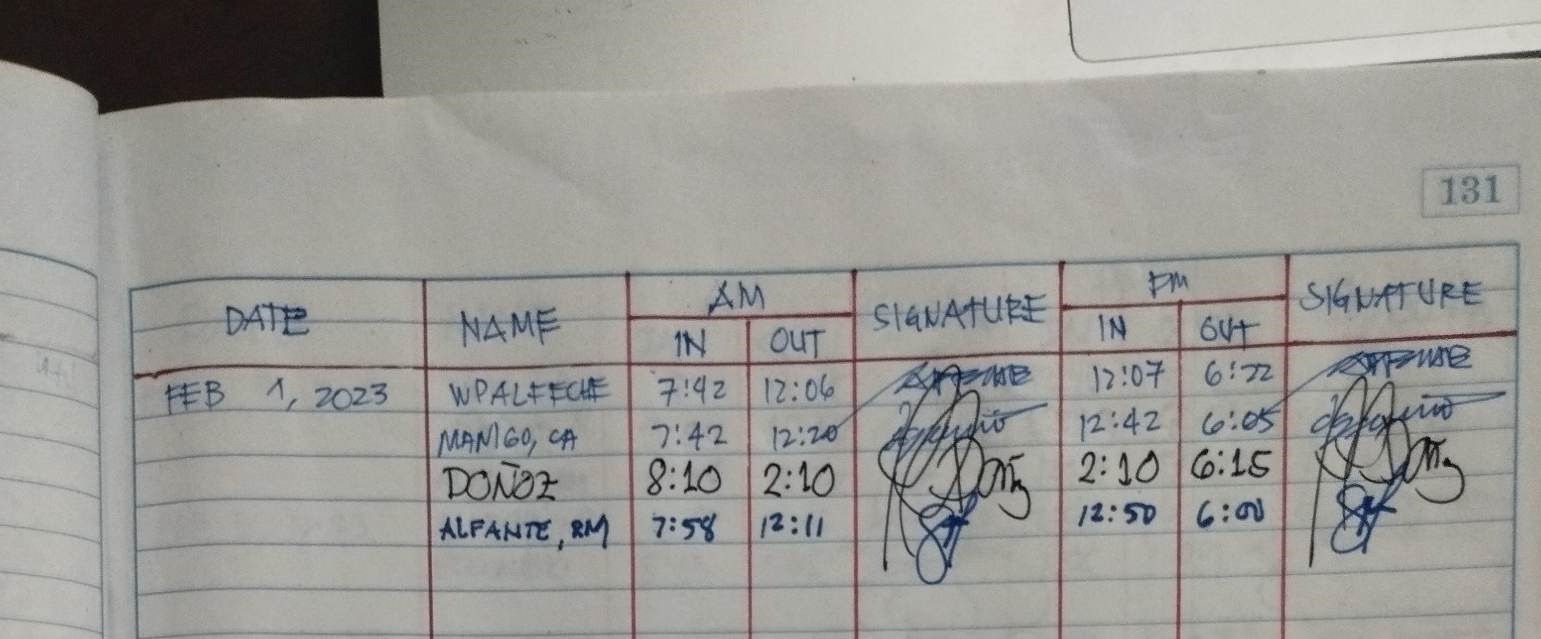 131
DATE NAME AM SIGNATURE PM SIGNATURE
IN OUT IN OUT
FEB 1, 2023 WPALEECHE 7:42 12:06 12:07 6:22
MANIGO, CA 7:42 12:20 12:42 6:05
DOÑOZ 8:10 2:10 2:10 6:15
ALFANTE, RM 7:58 12:11 12:50 6:00